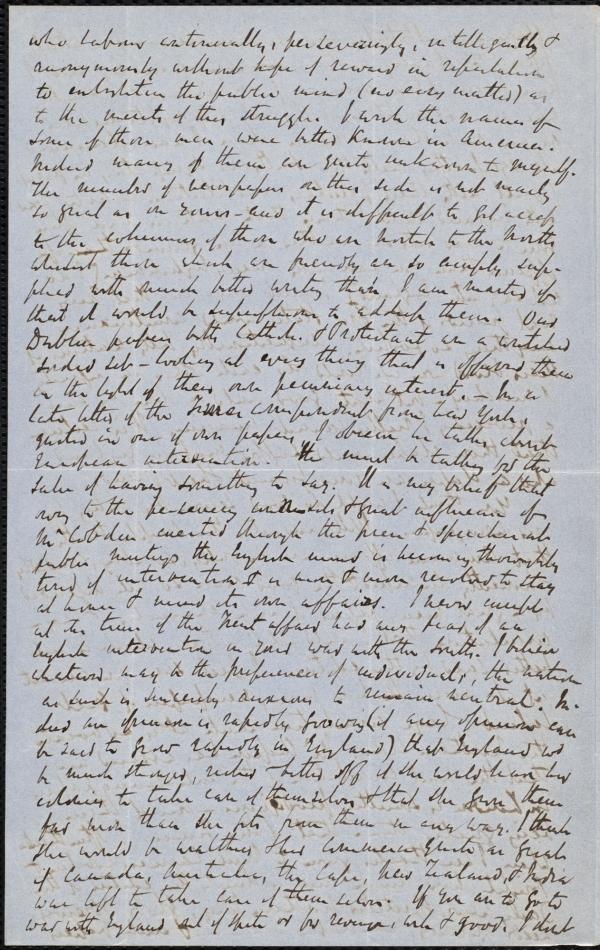 who labour continually, perseveringly, intelligently &
anonymously without hope of reward in reputation
to enlighten the public mind (no easy matter) as
to the merits of this struggle. I wish the names of
some of those men were better known in America.
Indeed many of them are quite unknown to myself.
The number of newspapers on this side is not nearly
so great as on yours - and it is difficult to get access
to the columns of those who are hostile to the North
whilst those which are friendly are so amply sup-
plied with much better writers than I am master of
that it would be superfluous to address them. Our
Dublin papers both Catholic & Protestant are a wretched
sordid set - looking at every thing that is offered them
in the light of their own pecuniary interest. - In a
late letter of the Times correspondent from New York,
quoted in one of our papers, I observe he talks about
European intervention. He must be talking for the
sake of having something to say. It is my belief that
owing to the persevering & great influence of
Mr Cobden exerted through the press & speeches at
public meetings the English mind is becoming thoroughly
tired of intervention & is more & more resolved to stay
at home & mind its own affairs. I never except
at the time of the Trent affair had any fear of an
English intervention in your war with the South. I believe
whatever may be the preferences of individuals, the nation
as such is sincerely anxious to remain neutral. In-
deed an opinion is rapidly growing (if any opinion can
be said to grow rapidly in England) that England wd
be much stronger, richer & better off if she would leave her
colonies to take care of themselves & that she gives them
far more than she gets from them in any way. I think
she would be wealthier & her commerce quite as great
if Canada, Australia, the Cape, New Zealand, & India
were left to take care of themselves. If you are to go to
war with England out of spite or for revenge, well & good. I don't